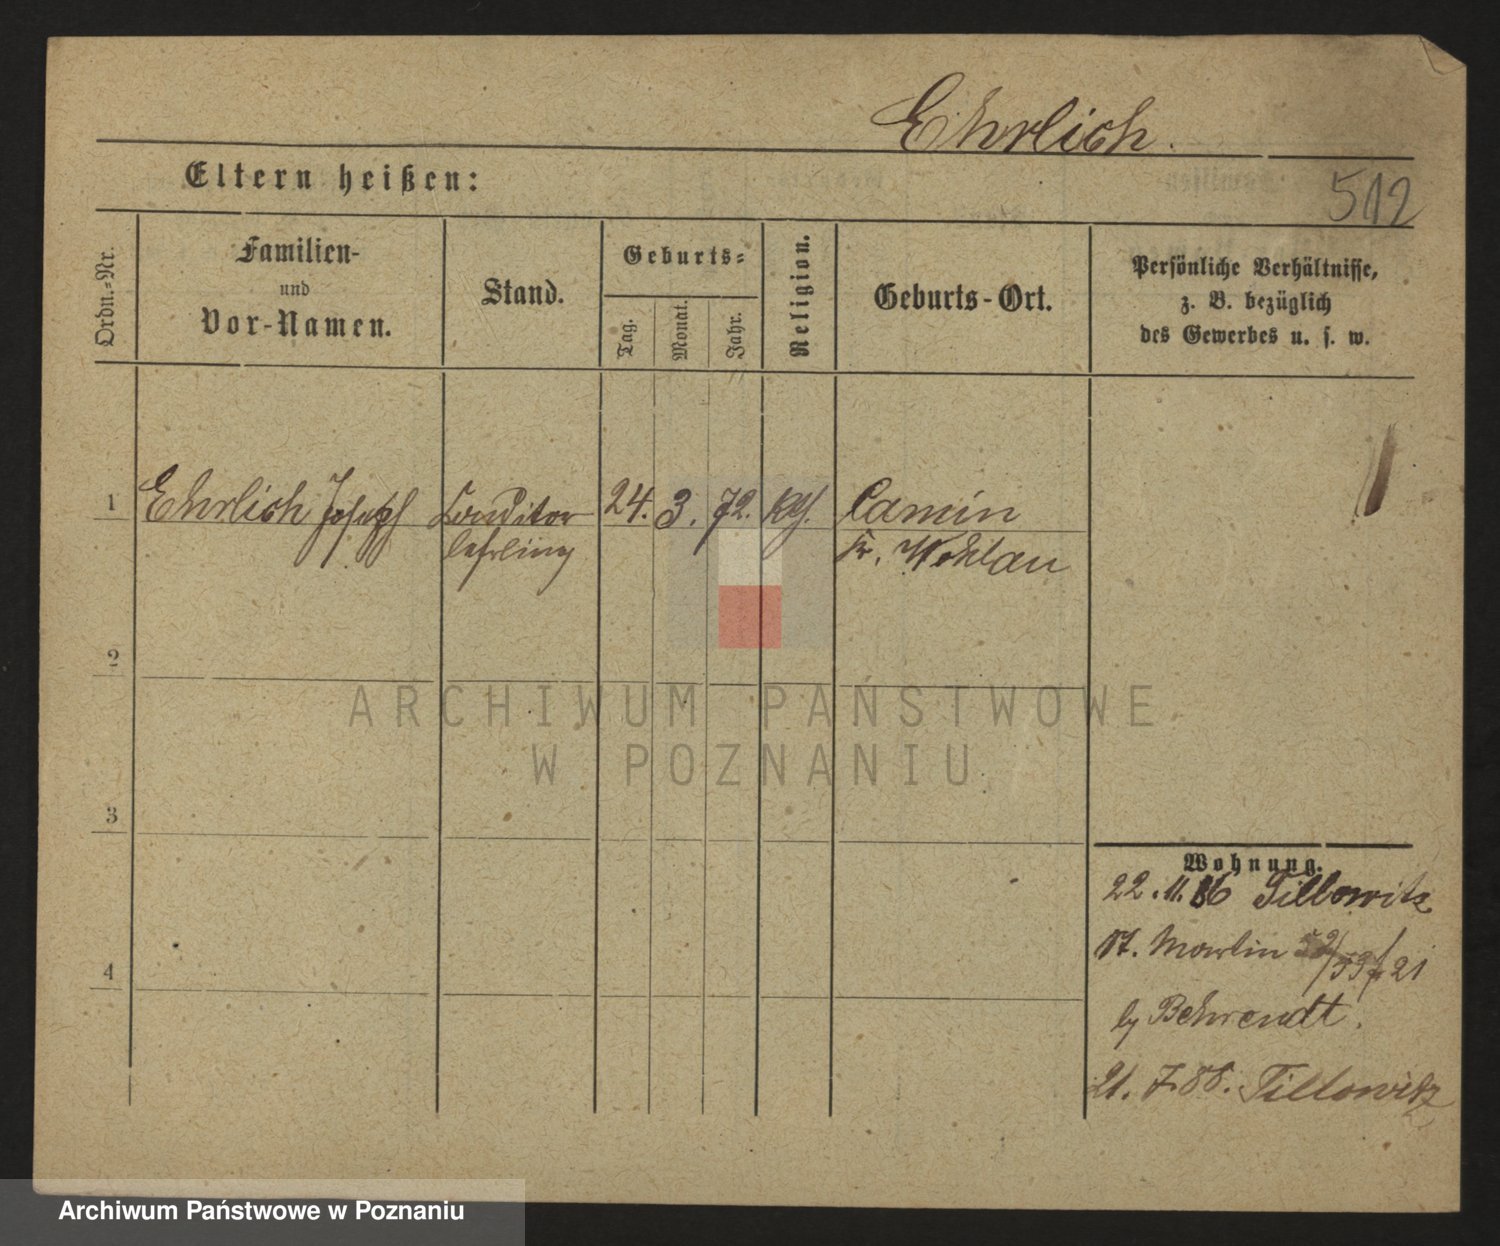 Ehrlich.
Eltern heißen:
512
Ordn.-Nr.
Familien-
und
Vor-Namen.
Stand.
Geburts-
Tag.
Monat.
Jahr.
Religion.
Geburts-Ort.
Persönliche Verhältnisse,
z. B. bezüglich
des Gewerbes u. s. w.
1 Ehrlich Joseph Conditor 24. 3. 72. kth. Camin
lehrling Kr. Wohlau
2
ARCHIWUM PAŃSTWOWE
W POZNANIU
3
Wohnung.
22.11.86 Tillowitz
St. Martin 52/53 21
by Behrendt.
21.7.88. Tillowitz
4
Archiwum Państwowe w Poznaniu